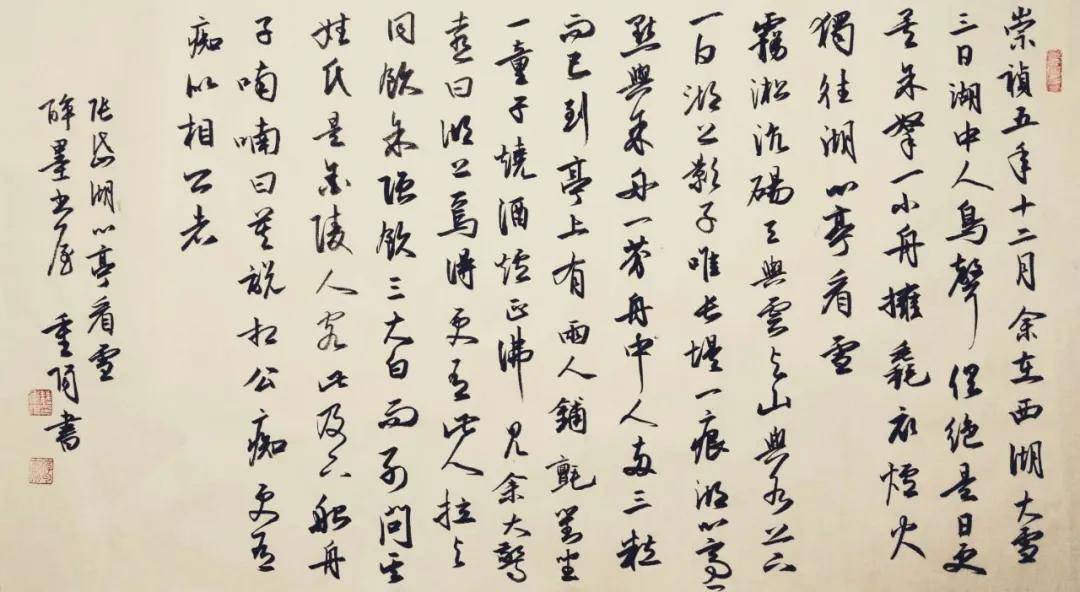 崇禎五年十二月余在西湖大雪
三日湖中人鳥聲俱絕是日更
定余拏一小舟擁毳衣爐火
獨往湖心亭看雪
霧淞沆碭天與雲與山與水上下
一白湖上影子唯長堤一痕湖心亭一
點與余舟一芥舟中人兩三粒
而已到亭上有兩人鋪氈對坐
一童子燒酒爐正沸見余大驚
喜曰湖上焉得更有此人拉余
同飲余強飲三大白而別問其
姓氏是金陵人客此及下船舟
子喃喃曰莫說相公痴更有
痴似相公者
張岱湖心亭看雪
醉墨書屋 書